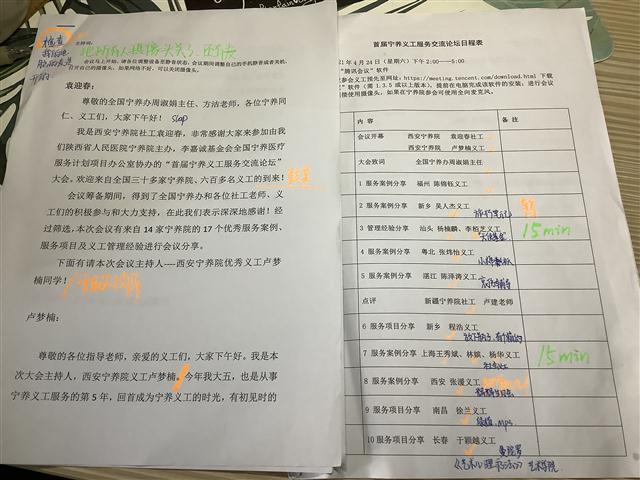 主持词:
会议马上开始，请各位调整设备至静音状态，会议期间请整自己的手机静音或者关机。
打开自己的摄像头，如果网络不好，可以关闭摄像头。
袁迎春:
尊敬的全国宁养办周淑娟主任、方洁老师，各位宁养同
仁、义工们，大家下午好！ stop
我是西安宁养院社工袁迎春，非常感谢大家来参加由我
们陕西省人民医院宁养院主办，李嘉诚基金会全国宁养医疗
服务计划项目办公室协办的“首届宁养义工服务交流论坛”
大会。欢迎来自全国三十多家宁养院、六百多名义工的到来！
会议筹备期间，得到了全国宁养办和各位社工老师、义
工们的积极参与和大力支持，在此我们表示深深地感谢！经
过筛选，本次会议有来自 14 家宁养院的 17 个优秀服务案例、
服务项目及义工管理经验进行会议分享。
下面有请本次会议主持人----西安宁养院优秀义工卢梦
楠同学！
卢梦楠:
尊敬的各位指导老师，亲爱的义工们，大家下午好。我是本
次大会主持人，西安宁养院义工卢梦楠。今年我大五，也是从事
宁养义工服务的第 5 年，回首成为宁养义工的时光，有初见时的
首届宁养义工服务交流论坛日程表
21 年 4 月 24 日（星期六）下午 2:00——5:00
“腾讯会议”软件
参会义工预先至网址：https://meeting.tencent.com/download.html 下载
软件（需 1.3.5 或以上版本），提前在电脑完成该软件的安装；进行会议
使用摄像头，如果在宁养院参会可使用全向麦克风。
内容 备注
会议开幕 西安宁养院 袁迎春社工
西安宁养院 卢梦楠义工
大会致词 全国宁养办周淑娟主任
1 服务案例分享 福州 陈锦钰义工
2 服务案例分享 新乡 吴人杰义工
3 管理经验分享 汕头 杨楠麟、李柏芝义工 15min
4 服务案例分享 粤北 张炜怡义工
5 服务案例分享 湛江 陈泽涛义工
点评 新疆宁养院社工 卢建老师
6 服务项目分享 新乡 程浩义工
7 服务项目分享 上海王秀斌、林嫔、杨华义工 15min
8 服务案例分享 西安 张湲义工
9 服务项目分享 南昌 徐兰义工
10 服务项目分享 长春 于颖越义工